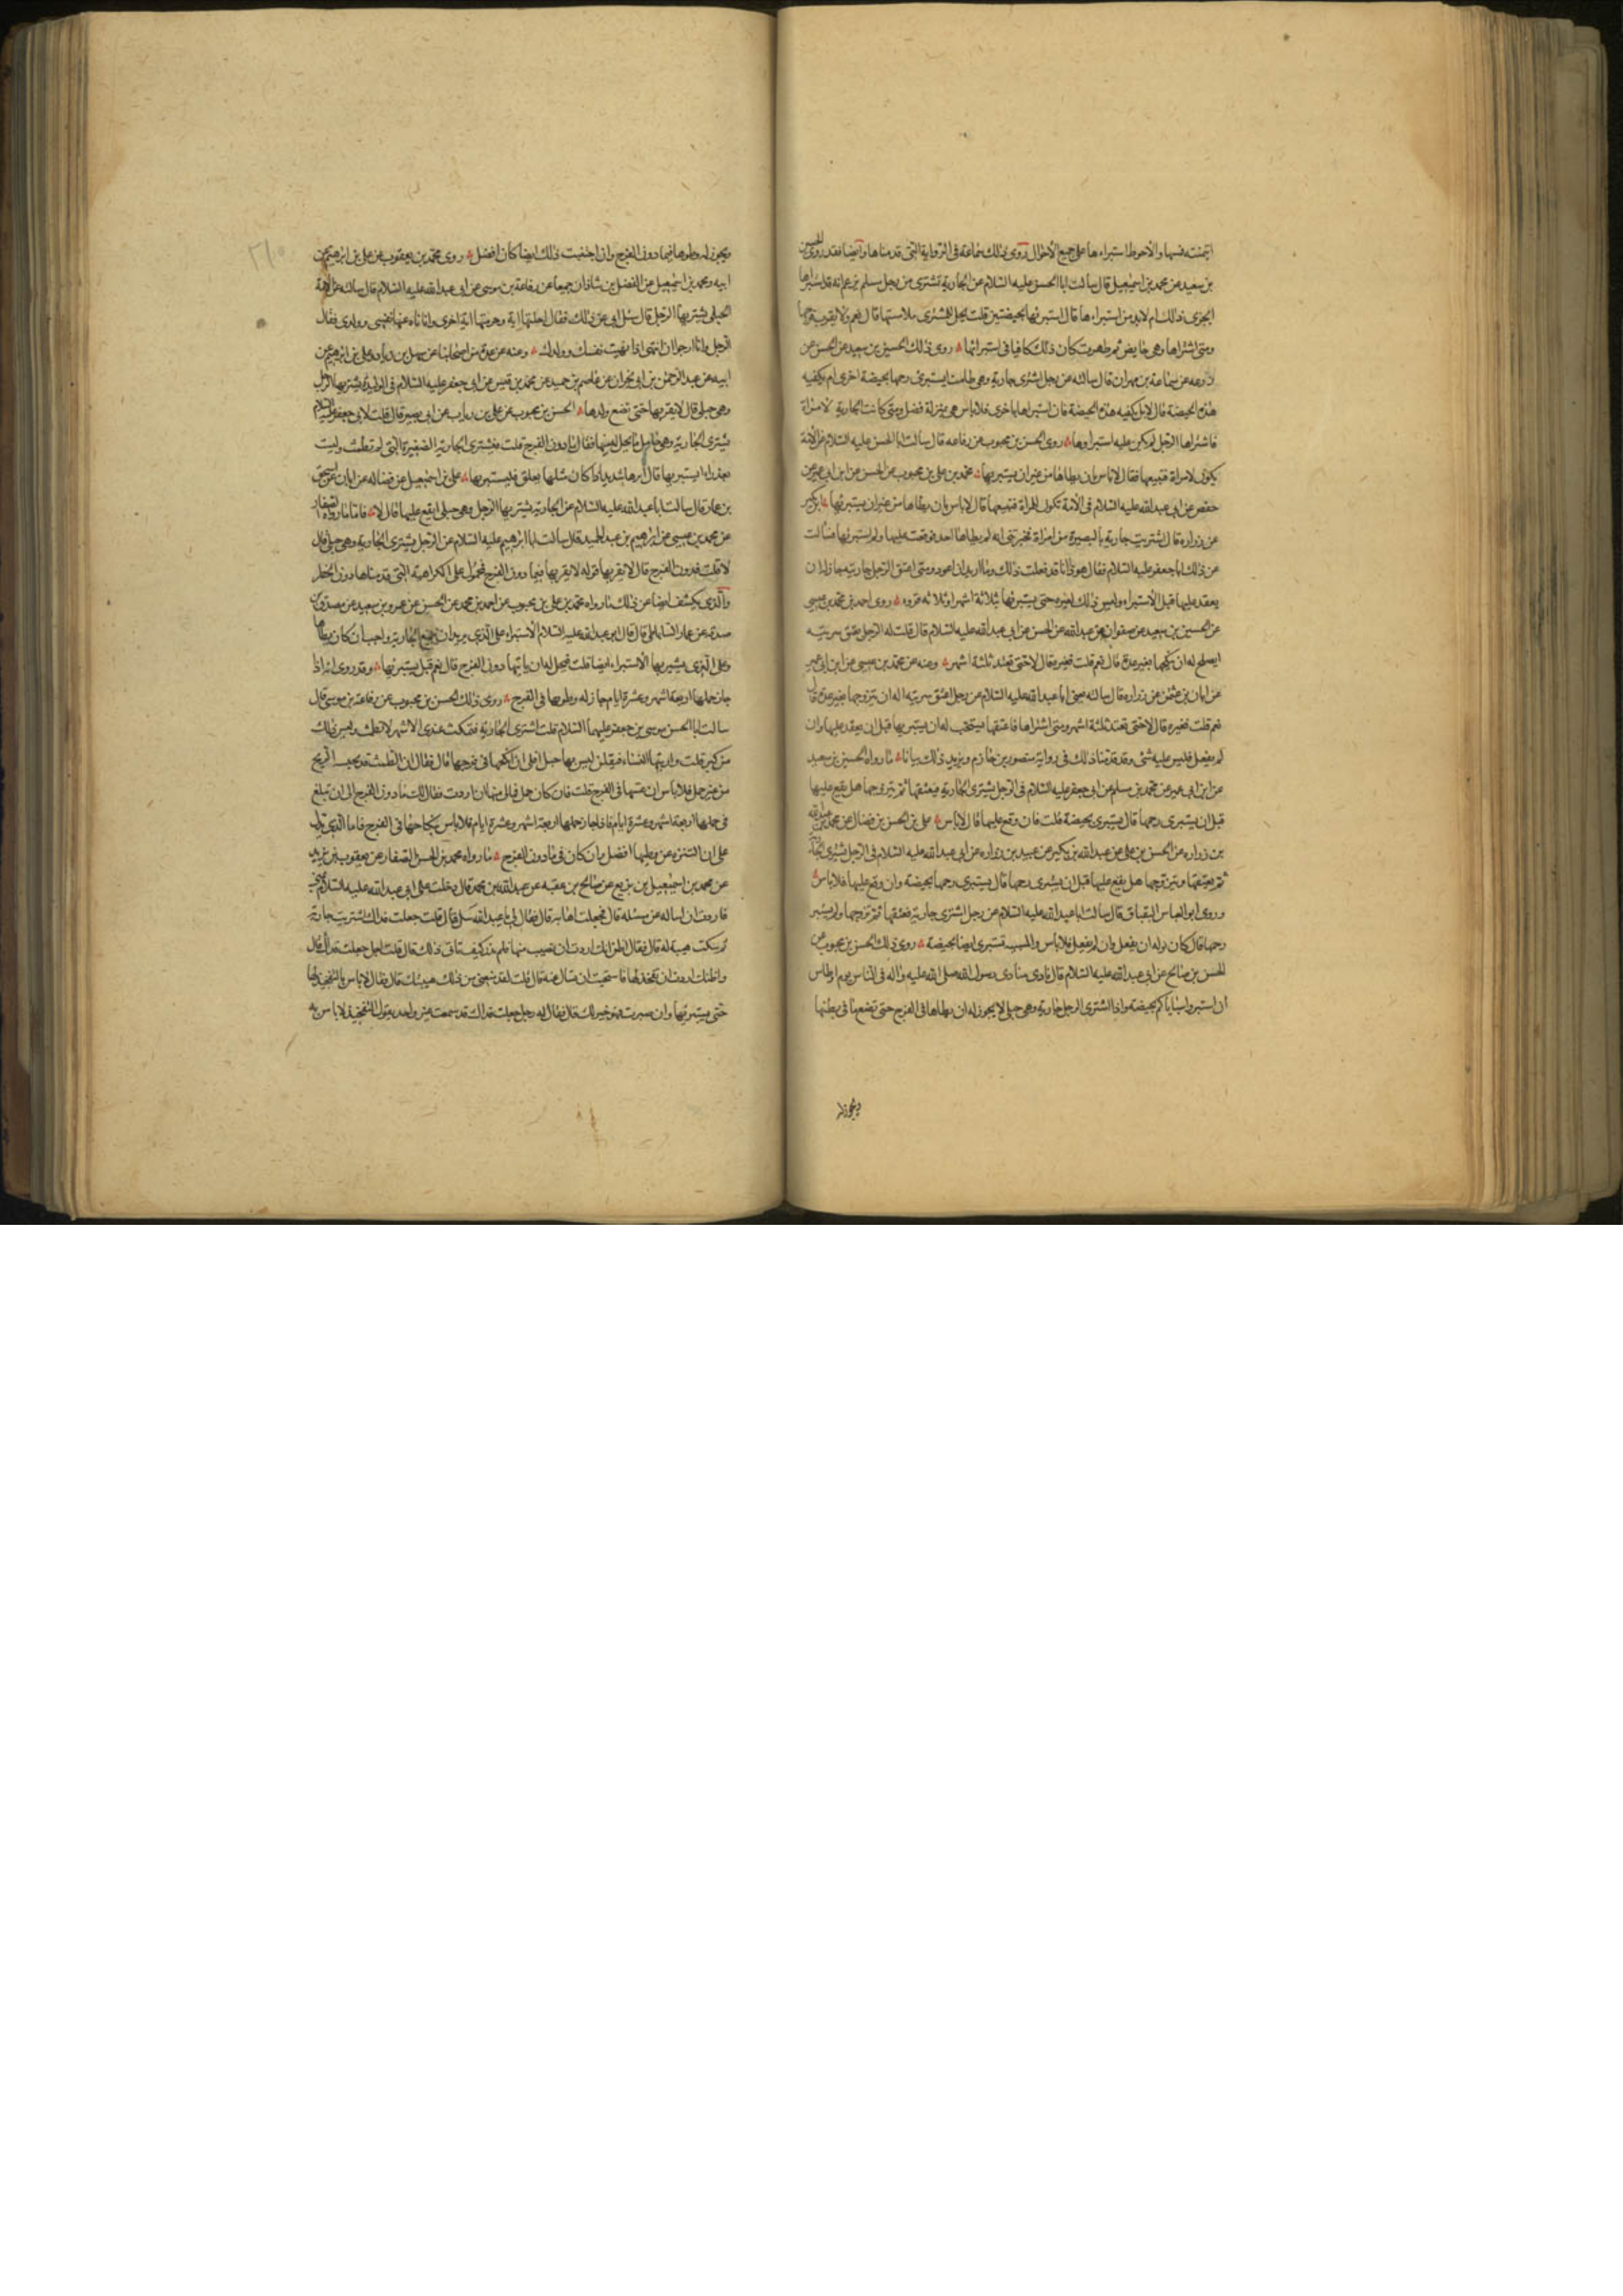 ائمنته فيها والأحوط استبراءها على جميع الأحوال روى ذلك سماعة في الرواية التي قدمناها وأيضا فقد روى الحسين
بن سعيد عن محمد بن اسمعيل قال سألت ابا الحسن عليه السلام عن الجارية تشترى من رجل مسلم يزعم انه قد استبراها
ايجزى ذلك ام لابد من استبراءها قال استبرئها بحيضتين قلت يحل للمشترى ملامستها قال نعم ولا يقرب فرجها
ومتى اشتراها وهى حايض ثم طهرت كان ذلك كافيا في استبرائها روى ذلك الحسين بن سعيد عن الحسن عن
زرعه عن سماعة بن مهران قال سالته عن رجل اشترى جارية وهى طامث ايستبرئ رحمها بحيضة اخرى ام يكفيه
هذه الحيضة قال لا بل يكفيه هذه الحيضة فان استبراها باخرى فلا باس هى بمنزلة فضل ومتى كانت الجارية لامراة
فاشتراها الرجل لم يكن عليه استبراوها روى الحسن بن محبوب عن رفاعه قال سالت ابا الحسن عليه السلام عن الأمة
يكون لامراة فتبيعها فقال لا باس بان يطاها من غير ان يستبريها محمد بن علي بن محبوب عن الحسن عن ابن ابي عمير عن
حفص عن ابي عبد الله عليه السلام في الأمة تكون للمراة فتبيعها قال لا باس بان يطاها من غير ان يستبرئها ابن بكير
عن زراره قال اشتريت جارية بالبصرة من امراة فخبرتنى انه لم يطاها احد فوقعت عليها ولم استبرئها فسالت
عن ذلك ابا جعفر عليه السلام فقال هو ذا انا قد فعلت ذلك وما اريد ان اعود ومتى اعتق الرجل جاريته جاز له ان
يعقد عليها قبل الأستبراء وليس ذلك لغيره حتى يستبرئها ثلاثة اشهر او ثلاثه قروء روى احمد بن محمد بن عيسى
عن الحسين بن سعيد عن صفوان عن عبد الله عن الحسن عن ابي عبد الله عليه السلام قال قلت له الرجل يعتق سريته
ايصلح له ان ينكحها بغير عدة قال نعم قلت فغيره قال لا حتى تعتد ثلثة اشهر وعنه عن محمد بن عيسى عن ابن ابي عمير
عن ابان بن عثمن عن زراره قال سالته يعنى ابا عبد الله عليه السلام عن رجل اعتق سريته اله ان يتزوجها بغير عدة قال
نعم قلت فغيره قال لا حتى تعتد ثلثة اشهر ومتى اشتراها فاعتقها يستحب له ان يستبريها قبل ان يعقد عليها وان
لم يفعل فليس عليه شئ وقد قدمنا ذلك في رواية منصور بن حازم ويزيد ذلك بيانا ما رواه الحسين بن سعيد
عن ابن ابي عمير عن محمد بن مسلم عن ابي جعفر عليه السلام في الرجل يشترى الجارية فيعتقها ثم يتزوجها هل يقع عليها
قبل ان يستبرى رحمها قال يستبرى بحيضة قلت فان وقع عليها قال لا باس علي بن الحسن بن فضال عن محمد بن عبد الله
بن زراره عن الحسن بن علي عن عبد الله بن بكير عن عبيد بن زراره عن ابي عبد الله عليه السلام في الرجل يشترى الجارية
ثم يعتقها ويتزوجها هل يقع عليها قبل ان يستبرى رحمها قال يستبرى رحمها بحيضة وان وقع عليها فلا باس
وروى ابو العباس البقباق قال سالت ابا عبد الله عليه السلام عن رجل اشترى جارية فعتقها ثم تزوجها ولم يستبر
رحمها قال كان نوله ان يفعل وان لم يفعل فلا باس والمسبية تستبرى ايضا بحيضة روى ذلك الحسن بن محبوب عن
الحسن بن صالح عن ابي عبد الله عليه السلام قال نادى منادى رسول الله صلى الله عليه واله في الناس يوم اوطاس
ان استبروا سباياكم بحيضة واذا اشترى الرجل جارية وهى حبلى لا يجوز له ان يطاها في الفرج حتى تضع ما في بطنها
ويجوز له
٢١٠
ويجوز له وطوها فيما دون الفرج وان اجتنبت ذلك ايضا كان افضل روى محمد بن يعقوب عن علي بن ابرهيم عن
ابيه ومحمد بن اسمعيل عن الفضل بن شاذان جميعا عن رفاعة بن موسى عن ابي عبد الله عليه السلام قال سالته عن الأمة
الحبلى يشتريها الرجل قال سئل ابي عن ذلك فقال احلتها اية وحرمتها اية اخرى وانا ناه عنها نفسى وولدى فقال
الرجل وانا ارجوا ان انتهى اذا نهيت نفسك وولدك وعنه عن عدة من اصحابنا عن سهل بن زياد وعلي بن ابرهيم عن
ابيه عن عبد الرحمن بن ابي نجران عن عاصم بن حميد عن محمد بن قيس عن ابي جعفر عليه السلام في الوليدة يشتريها الرجل
وهى حبلى قال لا يقربها حتى تضع ولدها الحسن بن محبوب عن علي بن رياب عن ابي بصير قال قلت لأبي جعفر عليه السلام
يشترى الجارية وهى حامل ما يحل له منها فقال ما دون الفرج قلت فيشترى الجارية الصغيرة التي لم تطمث وليست
بعذراء ايستبريها قال امرها شديد اذا كان مثلها يعلق فليستبريها علي بن اسمعيل عن فضاله عن ابان عن اسحق
بن عمار قال سالت ابا عبد الله عليه السلام عن الجارية يشتريها الرجل وهى حبلى ايقع عليها قال لا فاما ما رواه الصفار
عن محمد بن عيسى عن ابرهيم بن عبد الحميد قال سالت ابا ابرهيم عليه السلام عن الرجل يشترى الجارية وهى حبلى قال
لا قلت فدون الفرج قال لا يقربها قوله لا يقربها فيما دون الفرج فمحمول على الكراهية التي قدمناها دون الحظر
والذى يكشف ايضا عن ذلك ما رواه محمد بن علي بن محبوب عن احمد بن محمد عن الحسن عن عمرو بن سعيد عن مصدق بن
صدقه عن عمار الساباطى قال قال ابو عبد الله عليه السلام الأستبراء على الذى يريد ان يبيع الجارية واجب ان كان يطاها
وعلى الذى يشتريها الأستبراء ايضا قلت فيحل له ان ياتيها دون الفرج قال نعم قبل يستبرئها وقد روى انه اذا
جاز حملها اربعة اشهر وعشرة ايام جاز له وطوها في الفرج روى ذلك الحسن بن محبوب عن رفاعة بن موسى قال
سالت ابا الحسن موسى بن جعفر عليهما السلام قلت اشترى الجارية فتمكث عندى الأشهر لا تطمث وليس ذلك
من كبر قلت واريتها النساء فيقلن ليس بها حبل افلى ان انكحها في فرجها قال فقال ان الطمث قد يحبسه الريح
من غير حبل فلا باس ان تمسها في الفرج قلت فان كان حمل فما لى منها ان اردت فقال لك ما دون الفرج الى ان تبلغ
في حملها اربعة اشهر وعشرة ايام فاذا جاز حملها اربعة اشهر وعشرة ايام فلا باس بنكاحها في الفرج فاما الذى يدل
على ان التنزه عن وطيها افضل وان كان في ما دون الفرج ما رواه محمد بن الحسن الصفار عن يعقوب بن يزيد
عن محمد بن اسمعيل بن بزيع عن صالح بن عقبه عن عبد الله بن محمد قال دخلت على ابي عبد الله عليه السلام بمنى
فاردت ان اساله عن مسئله قال فجعلت اهابه قال فقال لي يا عبد الله سل قال قلت جعلت فداك اشتريت جارية
ثم سكت هيبة له قال فقال اظن انك اردت ان تصيب منها فلم تدر كيف تاتى ذلك قال قلت اجل جعلت فداك قال
واظنك اردت ان تفخذ لها فاستحيت ان تسال عنه قال قلت لقد منعنى من ذلك هيبتك قال فقال لا باس بالتفخيذ لها
حتى يستبرئها وان صبرت فهو خير لك قال فقال له رجل جعلت فداك قد سمعت غير واحد يقول التفخيذ لا باس به